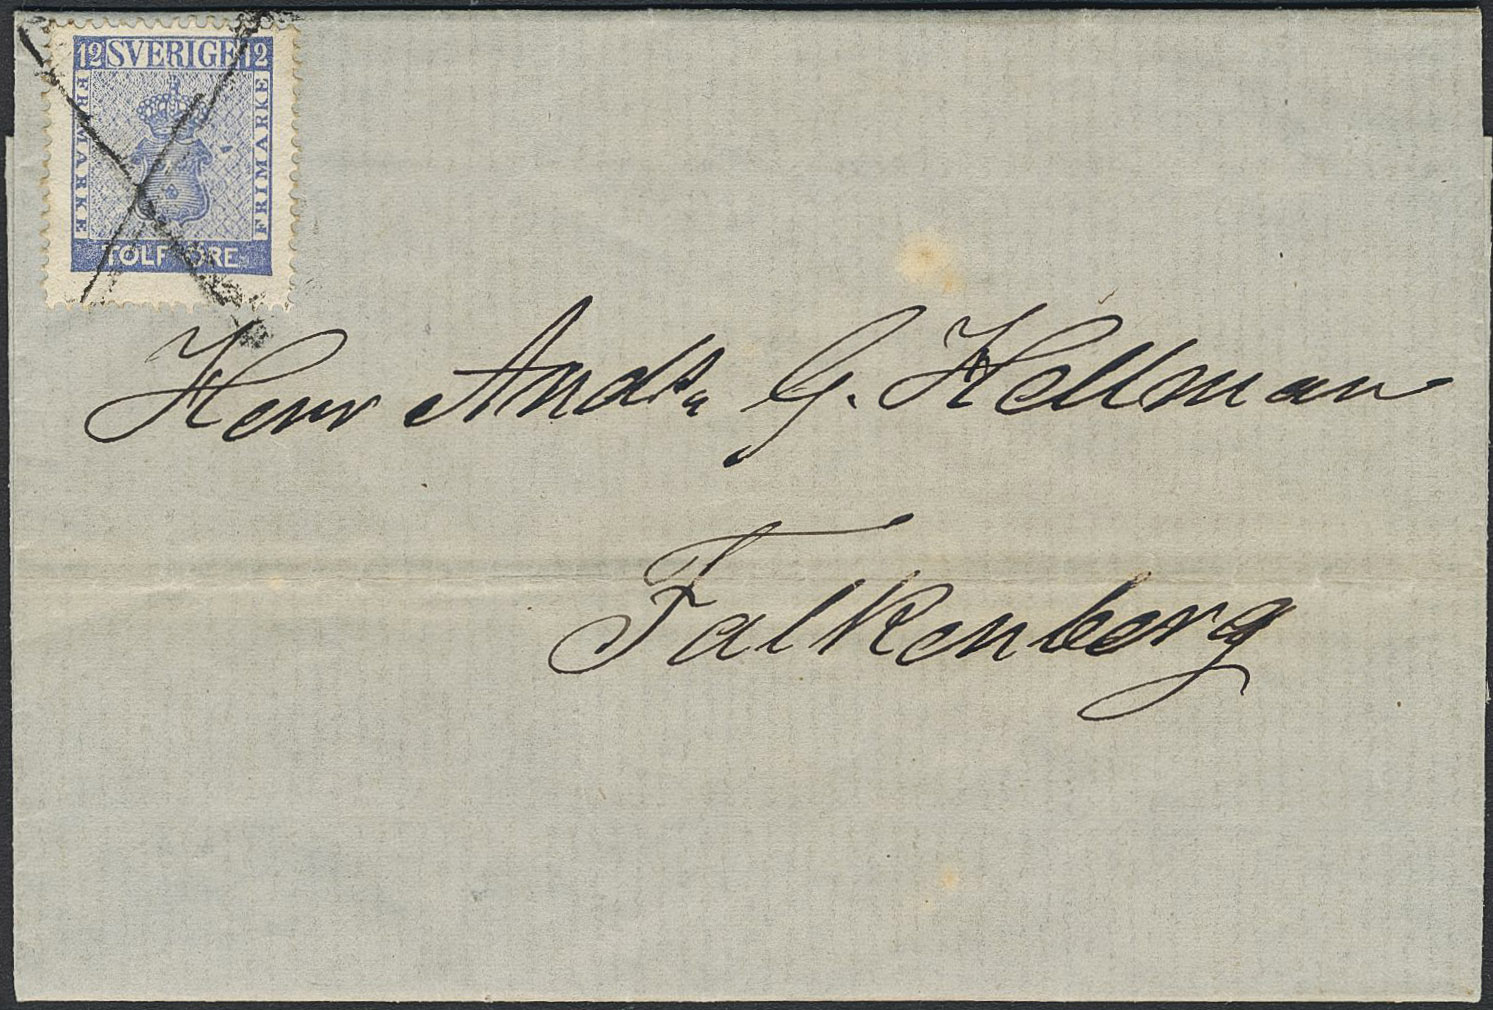 12 SVERIGE 12
FRIMARKE
FRIMARKE
TOLF ÖRE
Herr Andr. G. Hellman
Falkenberg